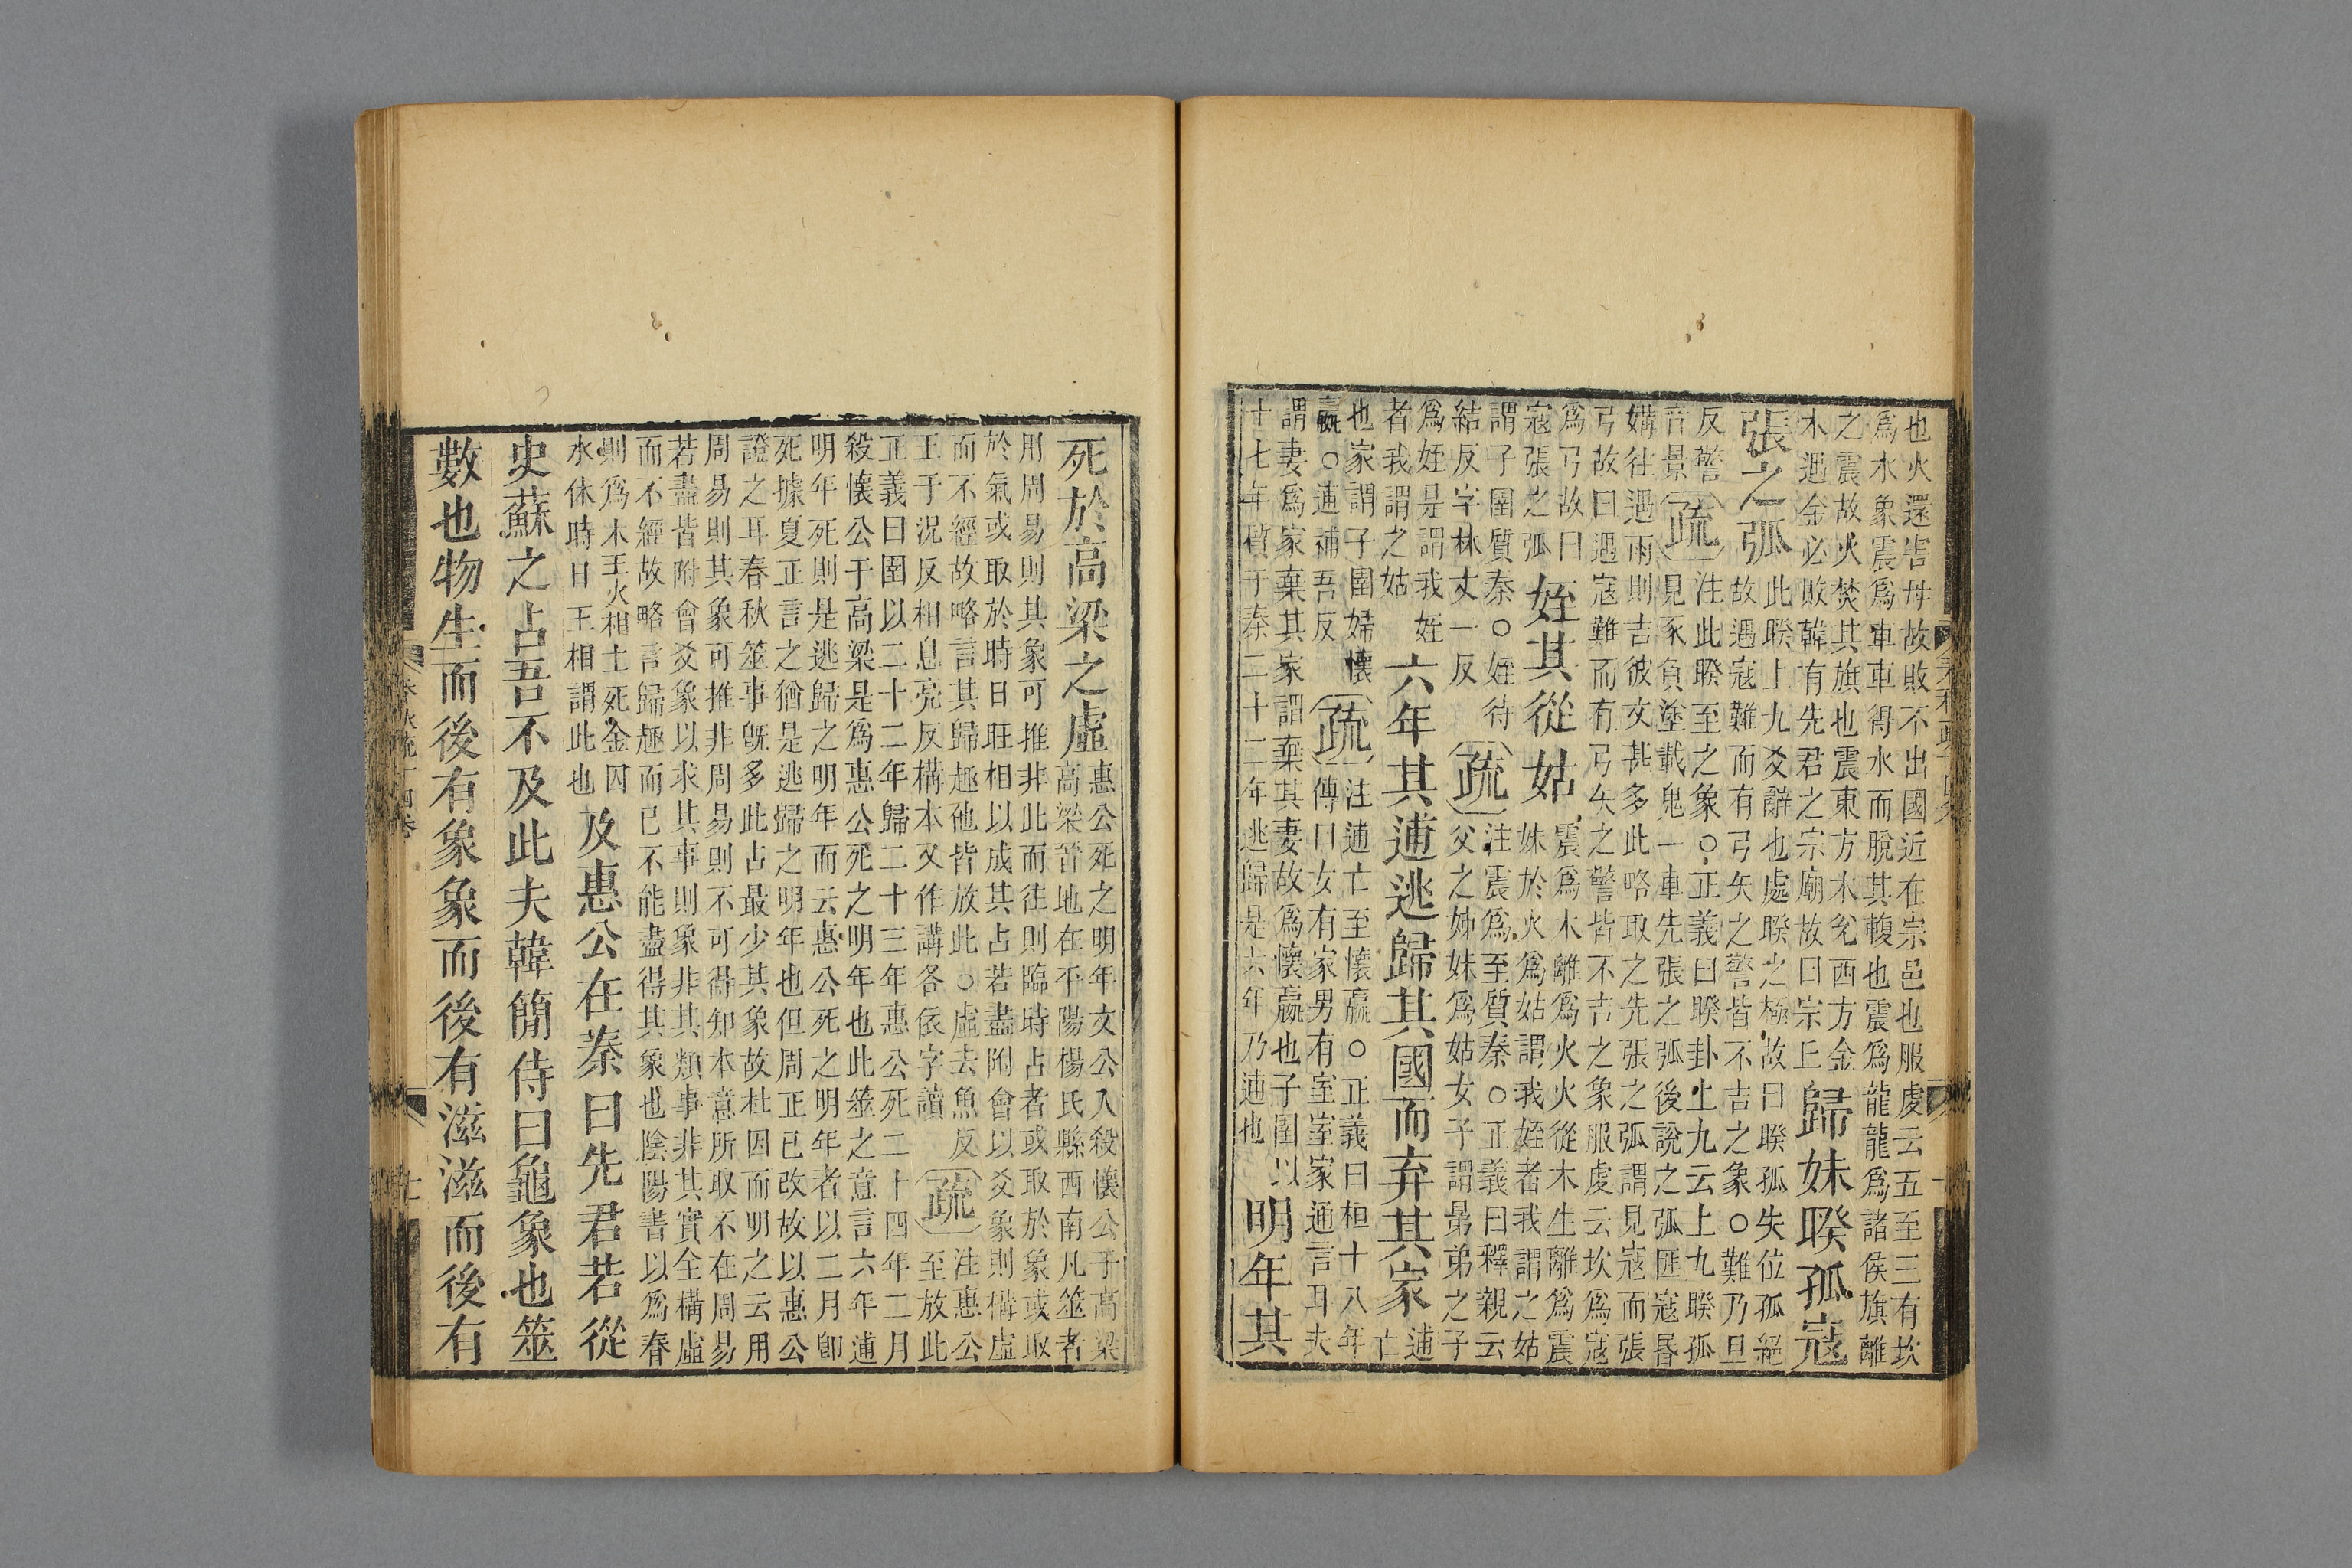 也火還害母故敗不出國近在宗邑也服虔云五至三有坎
爲水象震爲車車得水而脫其輹也震爲龍龍爲諸侯旗離
之震故火焚其旗也震東方木兊西方金
木遇金必敗韓有先君之宗廟故曰宗丘
歸妹睽孤寇
張之弧
此睽上九爻辭也處睽之極故曰睽孤失位孤絕
故遇寇難而有弓矢之警皆不吉之象○難乃旦
反警
音景
疏
注此睽至之象○正義曰睽卦上九云上九睽孤
見豕負塗載鬼一車先張之弧後說之弧匪寇昏
媾往遇雨則吉彼文甚多此略取之先張之弧謂見寇而張
弓故曰遇寇難而有弓矢之警皆不吉之象服虔云坎爲寇
爲弓故曰
寇張之弧
姪其從姑
震爲木離爲火火從木生離爲震
妹於火爲姑謂我姪者我謂之姑
謂子圉質秦○姪待
結反字林丈一反
疏
注震爲至質秦○正義曰釋親云
父之姊妹爲姑女子謂晜弟之子
爲姪是謂我姪
者我謂之姑
六年其逋逃歸其國而弃其家
逋
亡
也家謂子圉婦懷
嬴○逋補吾反
疏
注逋亡至懷嬴○正義曰桓十八年
傳曰女有家男有室室家通言耳夫
謂妻爲家棄其家謂棄其妻故爲懷嬴也子圉以
十七年質于秦二十二年逃歸是六年乃逋也
明年其
死於高梁之虛
惠公死之明年文公入殺懷公于高梁
高梁晉地在平陽楊氏縣西南凡筮者
用周易則其象可推非此而往則臨時占者或取於象或取
於氣或取於時日旺相以成其占若盡附會以爻象則構虛
而不經故略言其歸趣他皆放此○虛去魚反
王于況反相息亮反構本又作講各依字讀
疏
注惠公
至放此
正義曰圉以二十二年歸二十三年惠公死二十四年二月
殺懷公于高梁是爲惠公死之明年也此筮之意言六年逋
明年死則是逃歸之明年而云惠公死之明年者以二月卽
死據夏正言之猶是逃歸之明年也但周正已改故以惠公
證之耳春秋筮事旣多此占最少其象故杜因而明之云用
周易則其象可推非周易則不可得知本意所取不在周易
若盡皆附會爻象以求其事則象非其類事非其實全構虛
而不經故略言歸趣而已不能盡得其象也陰陽書以爲春
則爲木王火相土死金囚
水休時日王相謂此也
及惠公在秦曰先君若從
史蘇之占吾不及此夫韓簡侍曰龜象也筮
數也物生而後有象象而後有滋滋而後有